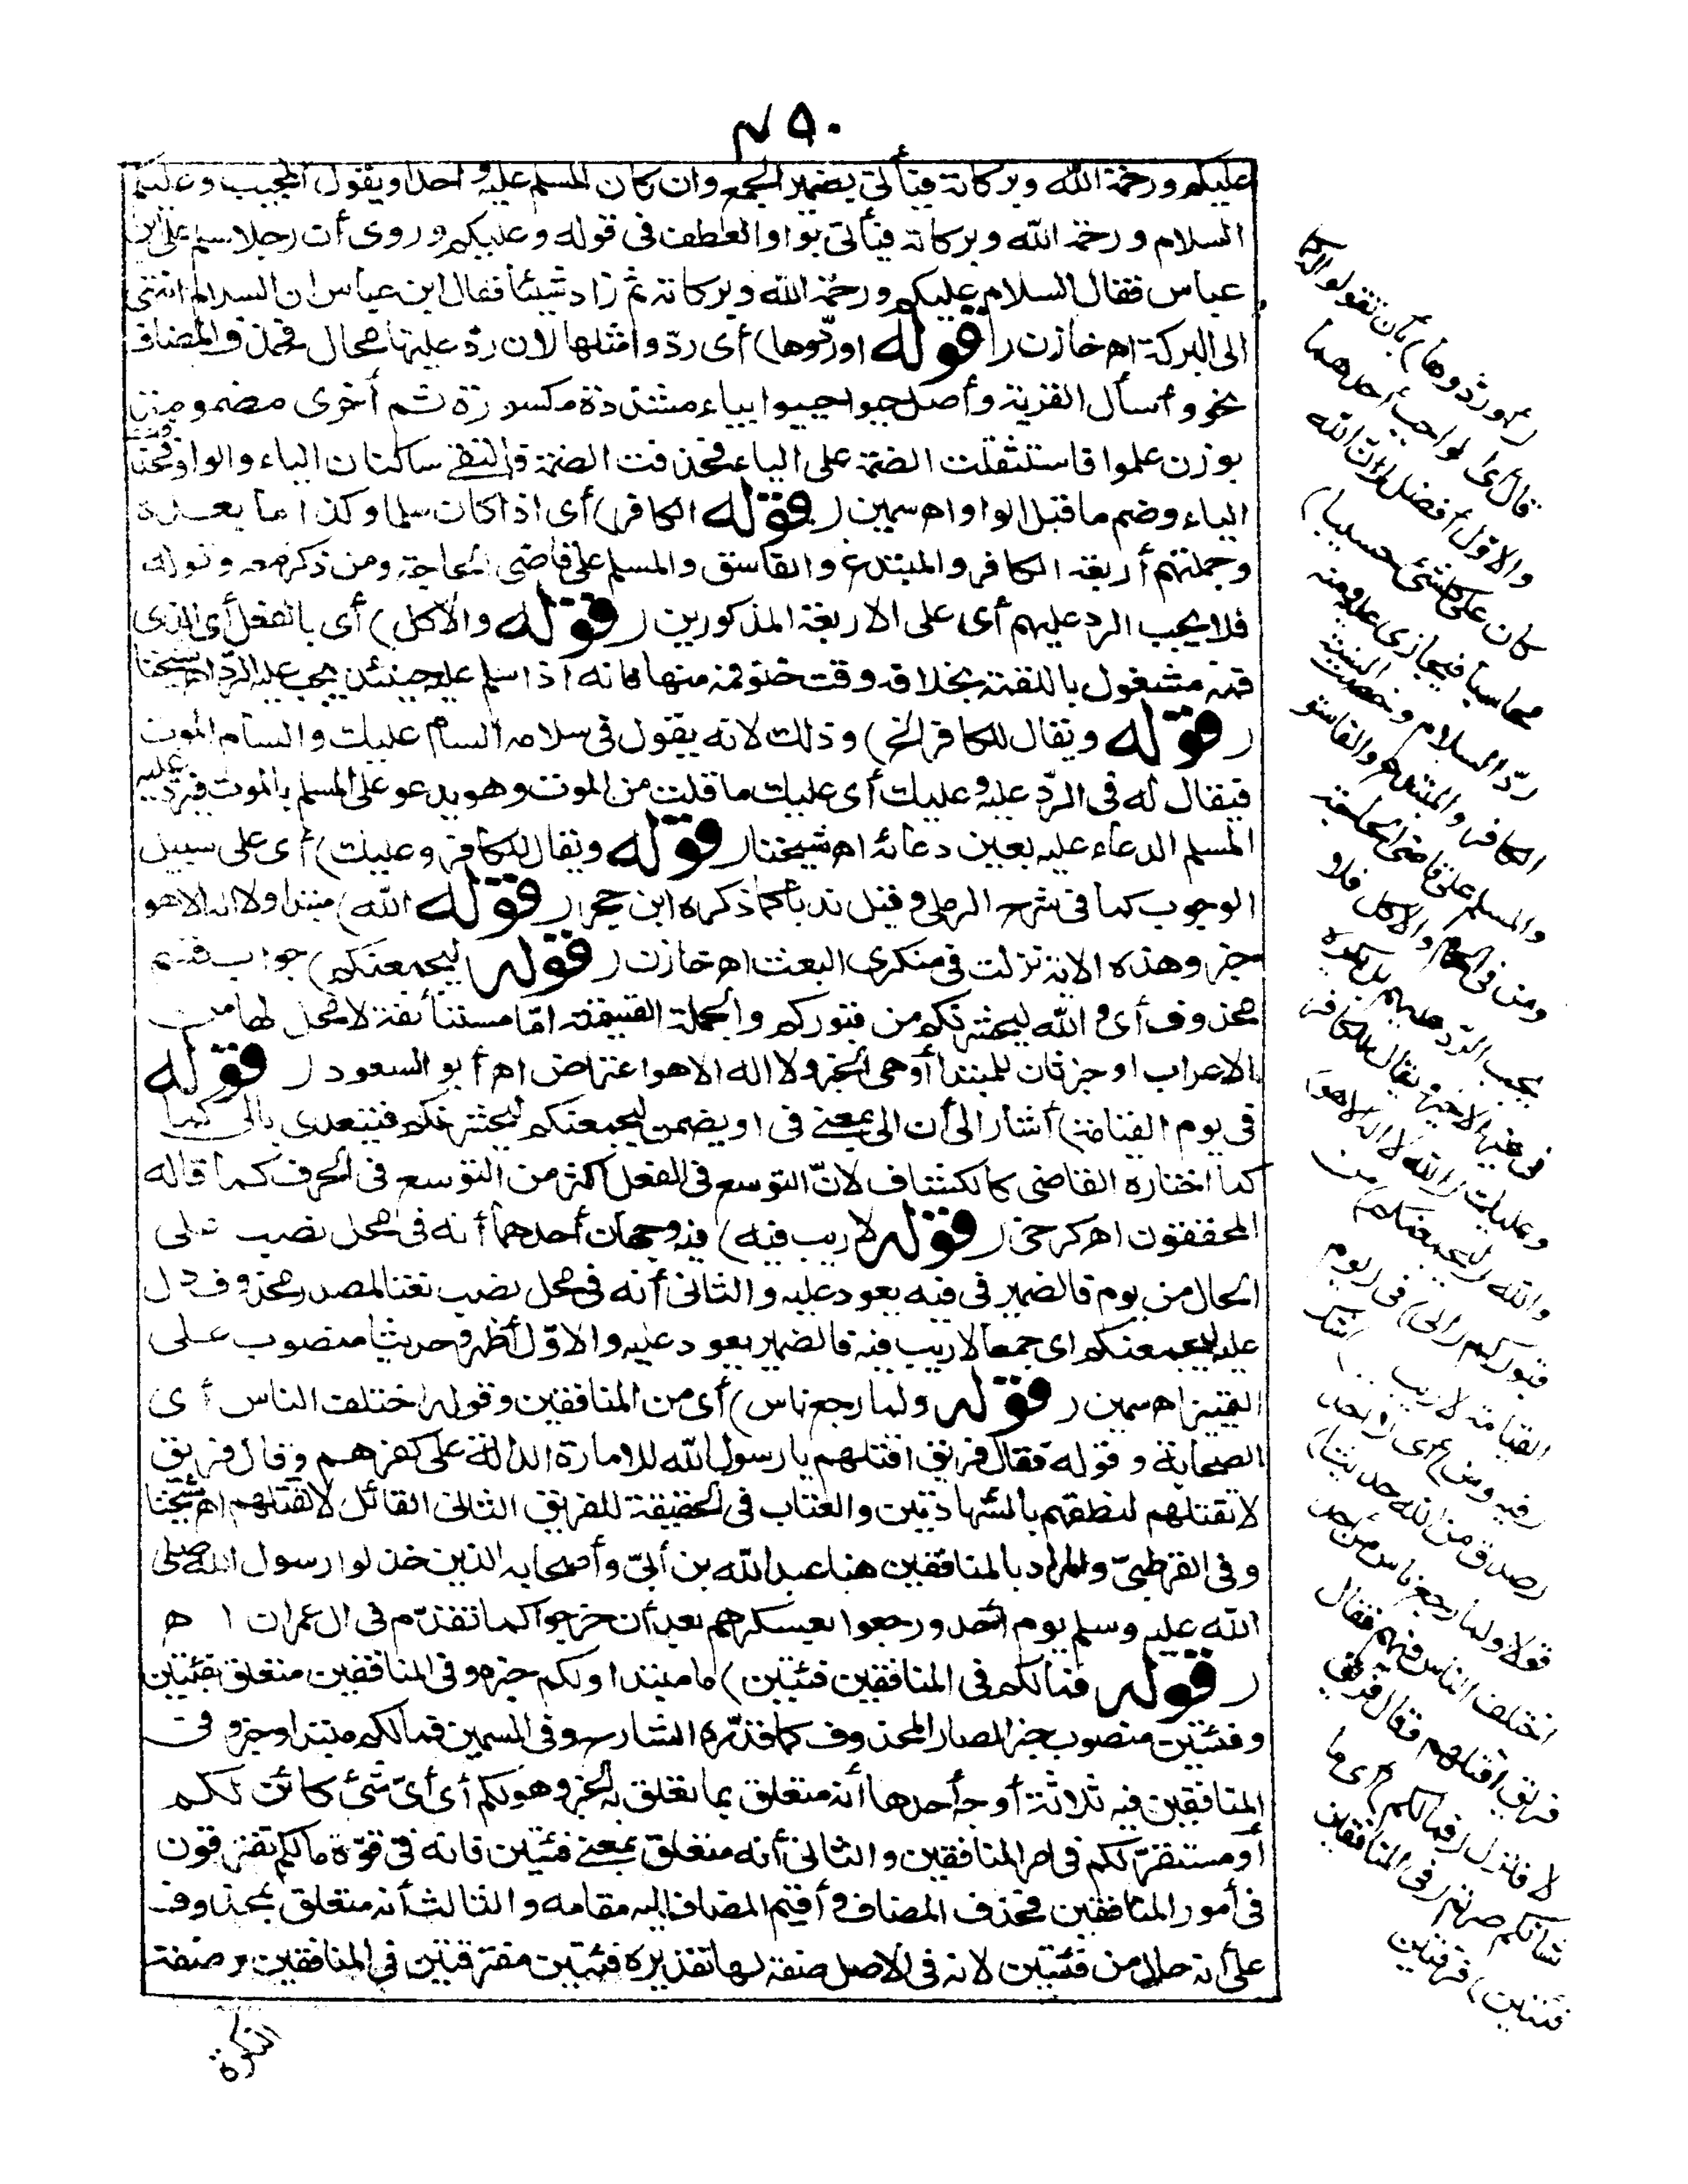 ٤٥٠
عليكم ورحمة الله وبركاته فيأتى بضمير الجمع وان كان المسلم عليه واحدا ويقول المجيب وعليكم
السلام ورحمة الله وبركاته فيأتى بواو العطف فى قوله وعليكم وروى أن رجلا سلم على ابن
عباس فقال السلام عليكم ورحمة الله وبركاته ثم زاد شيئا فقال ابن عباس ان السلام انتهى
الى البركة اه خازن (قوله اوردّوها) أى ردّوا مثلها لان ردّ عينها محال فحذف المضاف
نحو واسأل القرية وأصل حيوا حييوا بياء مشددة مكسورة ثم أخرى مضمومة
بوزن علموا فاستثقلت الضمة على الياء فحذفت الضمة فالتقى ساكنان الياء والواو فحذفت
الياء وضم ما قبل الواو اه سمين (قوله الكافر) أى اذا كان سلما وكذا ما بعده
وجملتهم أربعة الكافر والمبتدع والفاسق والمسلم على قاضى الحاجة ومن ذكر معه وقوله
فلا يجب الرد عليهم أى على الاربعة المذكورين (قوله والآكل) أى بالفعل أى الذى
فمه مشغول باللقمة بخلافه وقت خلو فمه منها فانه اذا سلم عليه حينئذ يجب عليه الردّ اه شيخنا
(قوله ويقال للكافر الخ) وذلك لانه يقول فى سلامه السام عليك والسام الموت
فيقال له فى الردّ عليه وعليك أى عليك ما قلت من الموت وهو يدعو على المسلم بالموت فيردّ عليه
المسلم الدعاء عليه بعين دعائه اه شيخنا (قوله ويقال للكافر وعليك) أى على سبيل
الوجوب كما فى شرح الرملى وقيل ندبا كما ذكره ابن حجر (قوله الله) مبتدا ولا اله الا هو
خبر وهذه الاية نزلت فى منكرى البعث اه خازن (قوله ليجمعنكم) جواب قسم
محذوف أى والله ليحشرنكم من قبوركم والجملة القسمية امّا مستأنفة لا محل لها من
الاعراب او خبر ثان للمبتدأ أو هى الخبر ولا اله الا هو اعتراض اه أبو السعود (قوله
فى يوم القيامة) أشار الى أن الى بمعنى فى او يضمن ليجمعنكم ليحشرنكم فيتعدى بالى كما
كما اختاره القاضى كالكشاف لانّ التوسع فى الفعل اكثر من التوسع فى الحرف كما قاله
المحققون اه كرخى (قوله لا ريب فيه) فيه وجهان أحدهما أنه فى محل نصب على
الحال من يوم فالضمير فى فيه يعود عليه والثانى أنه فى محل نصب نعتا لمصدر محذوف دل
عليه ليجمعنكم اى جمعا لا ريب فيه فالضمير يعود عليه والاوّل أظهر وحديثا منصوب على
التمييز اه سمين (قوله ولما رجع ناس) أى من المنافقين وقوله اختلف الناس أى
الصحابة وقوله فقال فريق اقتلهم يا رسول الله للامارة الدالة على كفرهم وقال فريق
لا تقتلهم لنطقهم بالشهادتين والعتاب فى الحقيقة للفريق الثانى القائل لا تقتلهم اه شيخنا
وفى القرطبىّ والمراد بالمنافقين هنا عبد الله بن أبىّ وأصحابه الذين خذلوا رسول الله صلى
الله عليه وسلم يوم أحد ورجعوا بعسكرهم بعد أن خرجوا كما تقدّم فى ال عمران اه
(قوله فما لكم فى المنافقين فئتين) ما مبتدا ولكم خبره وفى المنافقين متعلق بفئتين
وفئتين منصوب خبر لصار المحذوف كما قدّره الشارح وفى السمين فما لكم مبتدا وخبر وفى
المنافقين فيه ثلاثة أوجه أحدها أنه متعلق بما تعلق به الخبر وهو لكم أى أىّ شئ كائن لكم
أو مستقرّ لكم فى امر المنافقين والثانى أنه متعلق بمعنى فئتين فانه فى قوّة ما لكم تفترقون
فى أمور المنافقين فحذف المضاف وأقيم المضاف اليه مقامه والثالث أنه متعلق بمحذوف
على أنه حال من فئتين لانه فى الاصل صفة لها تقديره فئتين مفترقتين فى المنافقين وصفة
النكرة
(أو ردّوها) بأن تقولوا له كما
قال أى لواجب أحدهما
والاوّل أفضل (ان الله
كان على كل شئ حسيبا)
محاسبا فيجازى عليه ومنه
ردّ السلام وخصت السنة
الكافر والمبتدع والفاسق
والمسلم على قاضى الحاجة
ومن فى الحمام والآكل فلا
يجب الردّ عليهم بل يكره
فى غير الاخير ويقال للكافر
وعليك (الله لا اله الا هو)
والله (ليجمعنكم) من
قبوركم (الى) فى (يوم
القيامة لا ريب) شك
(فيه ومن) أى لا أحد
(أصدق من الله حديثا)
قولا ولما رجع ناس من أحد
اختلف الناس فيهم فقال
فريق اقتلهم وقال فريق
لا فنزل (فما لكم) أى ما
شأنكم صرتم (فى المنافقين
فئتين) فرقتين